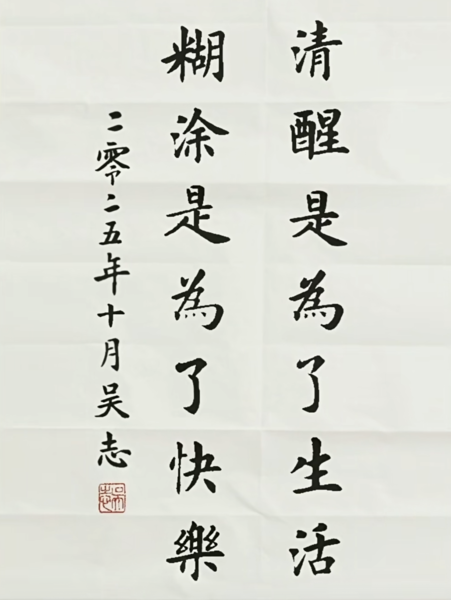 清醒是為了生活
糊涂是為了快樂
二零二五年十月吴志
吴志